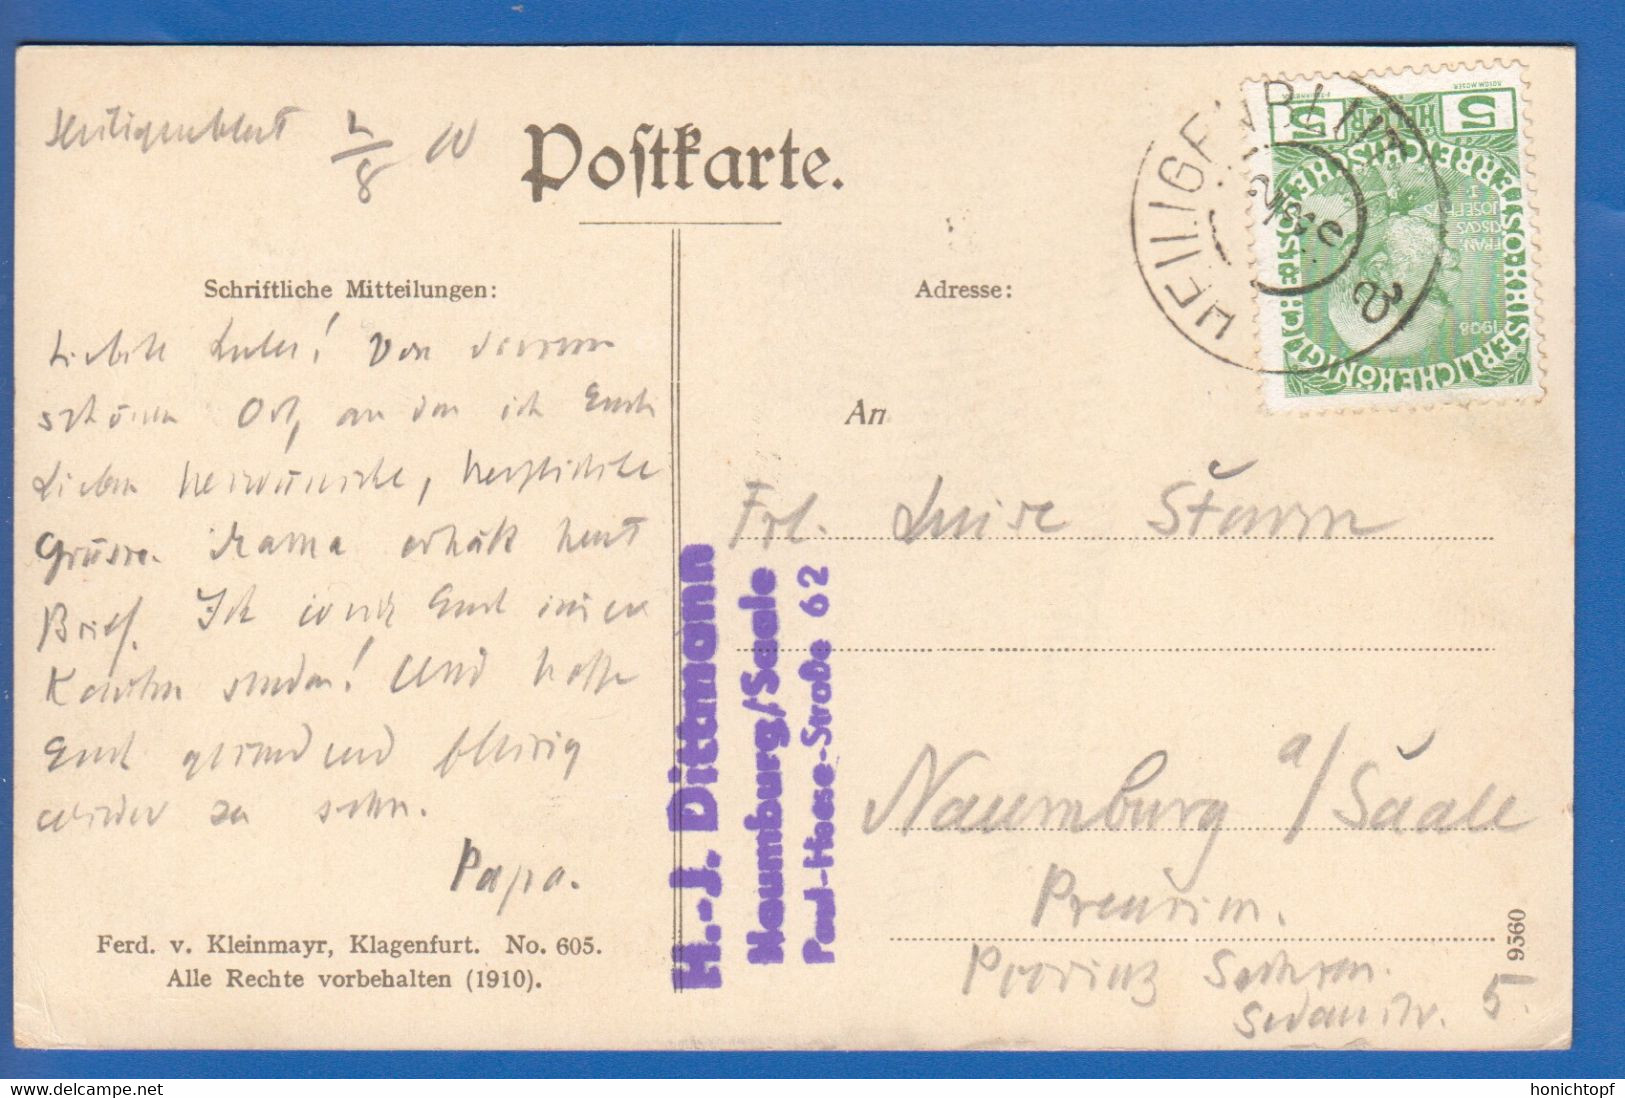 Heiligenblut 2/8 10
Postkarte.
Schriftliche Mitteilungen:
Liebste Luise! Von diesem
schönen Ort, an den ich Euch
Lieben herwünsche, herzlichste
Grüsse. Mama erhält heut
Brief. Ich werde Euch immer
Karten senden! Und hoffe
Euch gesund und
wieder zu sehn.
Papa.
Ferd. v. Kleinmayr, Klagenfurt. No. 605.
Alle Rechte vorbehalten (1910).
H.-J. Dittmann
Naumburg/Saale
Paul-Haese-Straße 62
Adresse:
An
Frl. Luise Sturm
Naumburg a/Saale
Preussen.
Provinz Sachsen.
Sedanstr. 5.
9360
HEILIGENBLUT
5 5
KAISERLICHE KÖNIGLICHE ÖSTERREICHISCHE POST
FRAN-
CISCVS
JOSEPHVS
I
1908